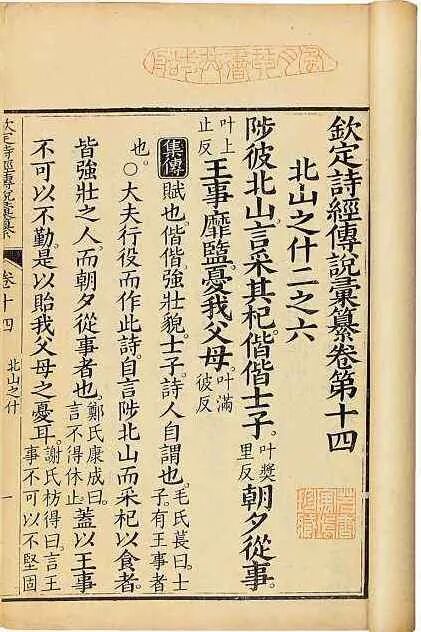 欽定詩經傳說彙纂卷第十四
北山之什二之六
陟彼北山。言采其杞。偕偕士子。叶獎里反朝夕從事。
叶上止反王事靡盬。憂我父母。叶滿彼反
集傳 賦也。偕偕。強壯貌。士子。詩人自謂也。毛氏萇曰。士子。有王事者
也。○大夫行役而作此詩。自言陟北山而采杞以食者。
皆強壯之人。而朝夕從事者也。鄭氏康成曰。言不得休止。蓋以王事
不可以不勤。是以貽我父母之憂耳。謝氏枋得曰。言王事不可以不堅固
欽定詩經傳說彙纂
卷十四
北山之什
一